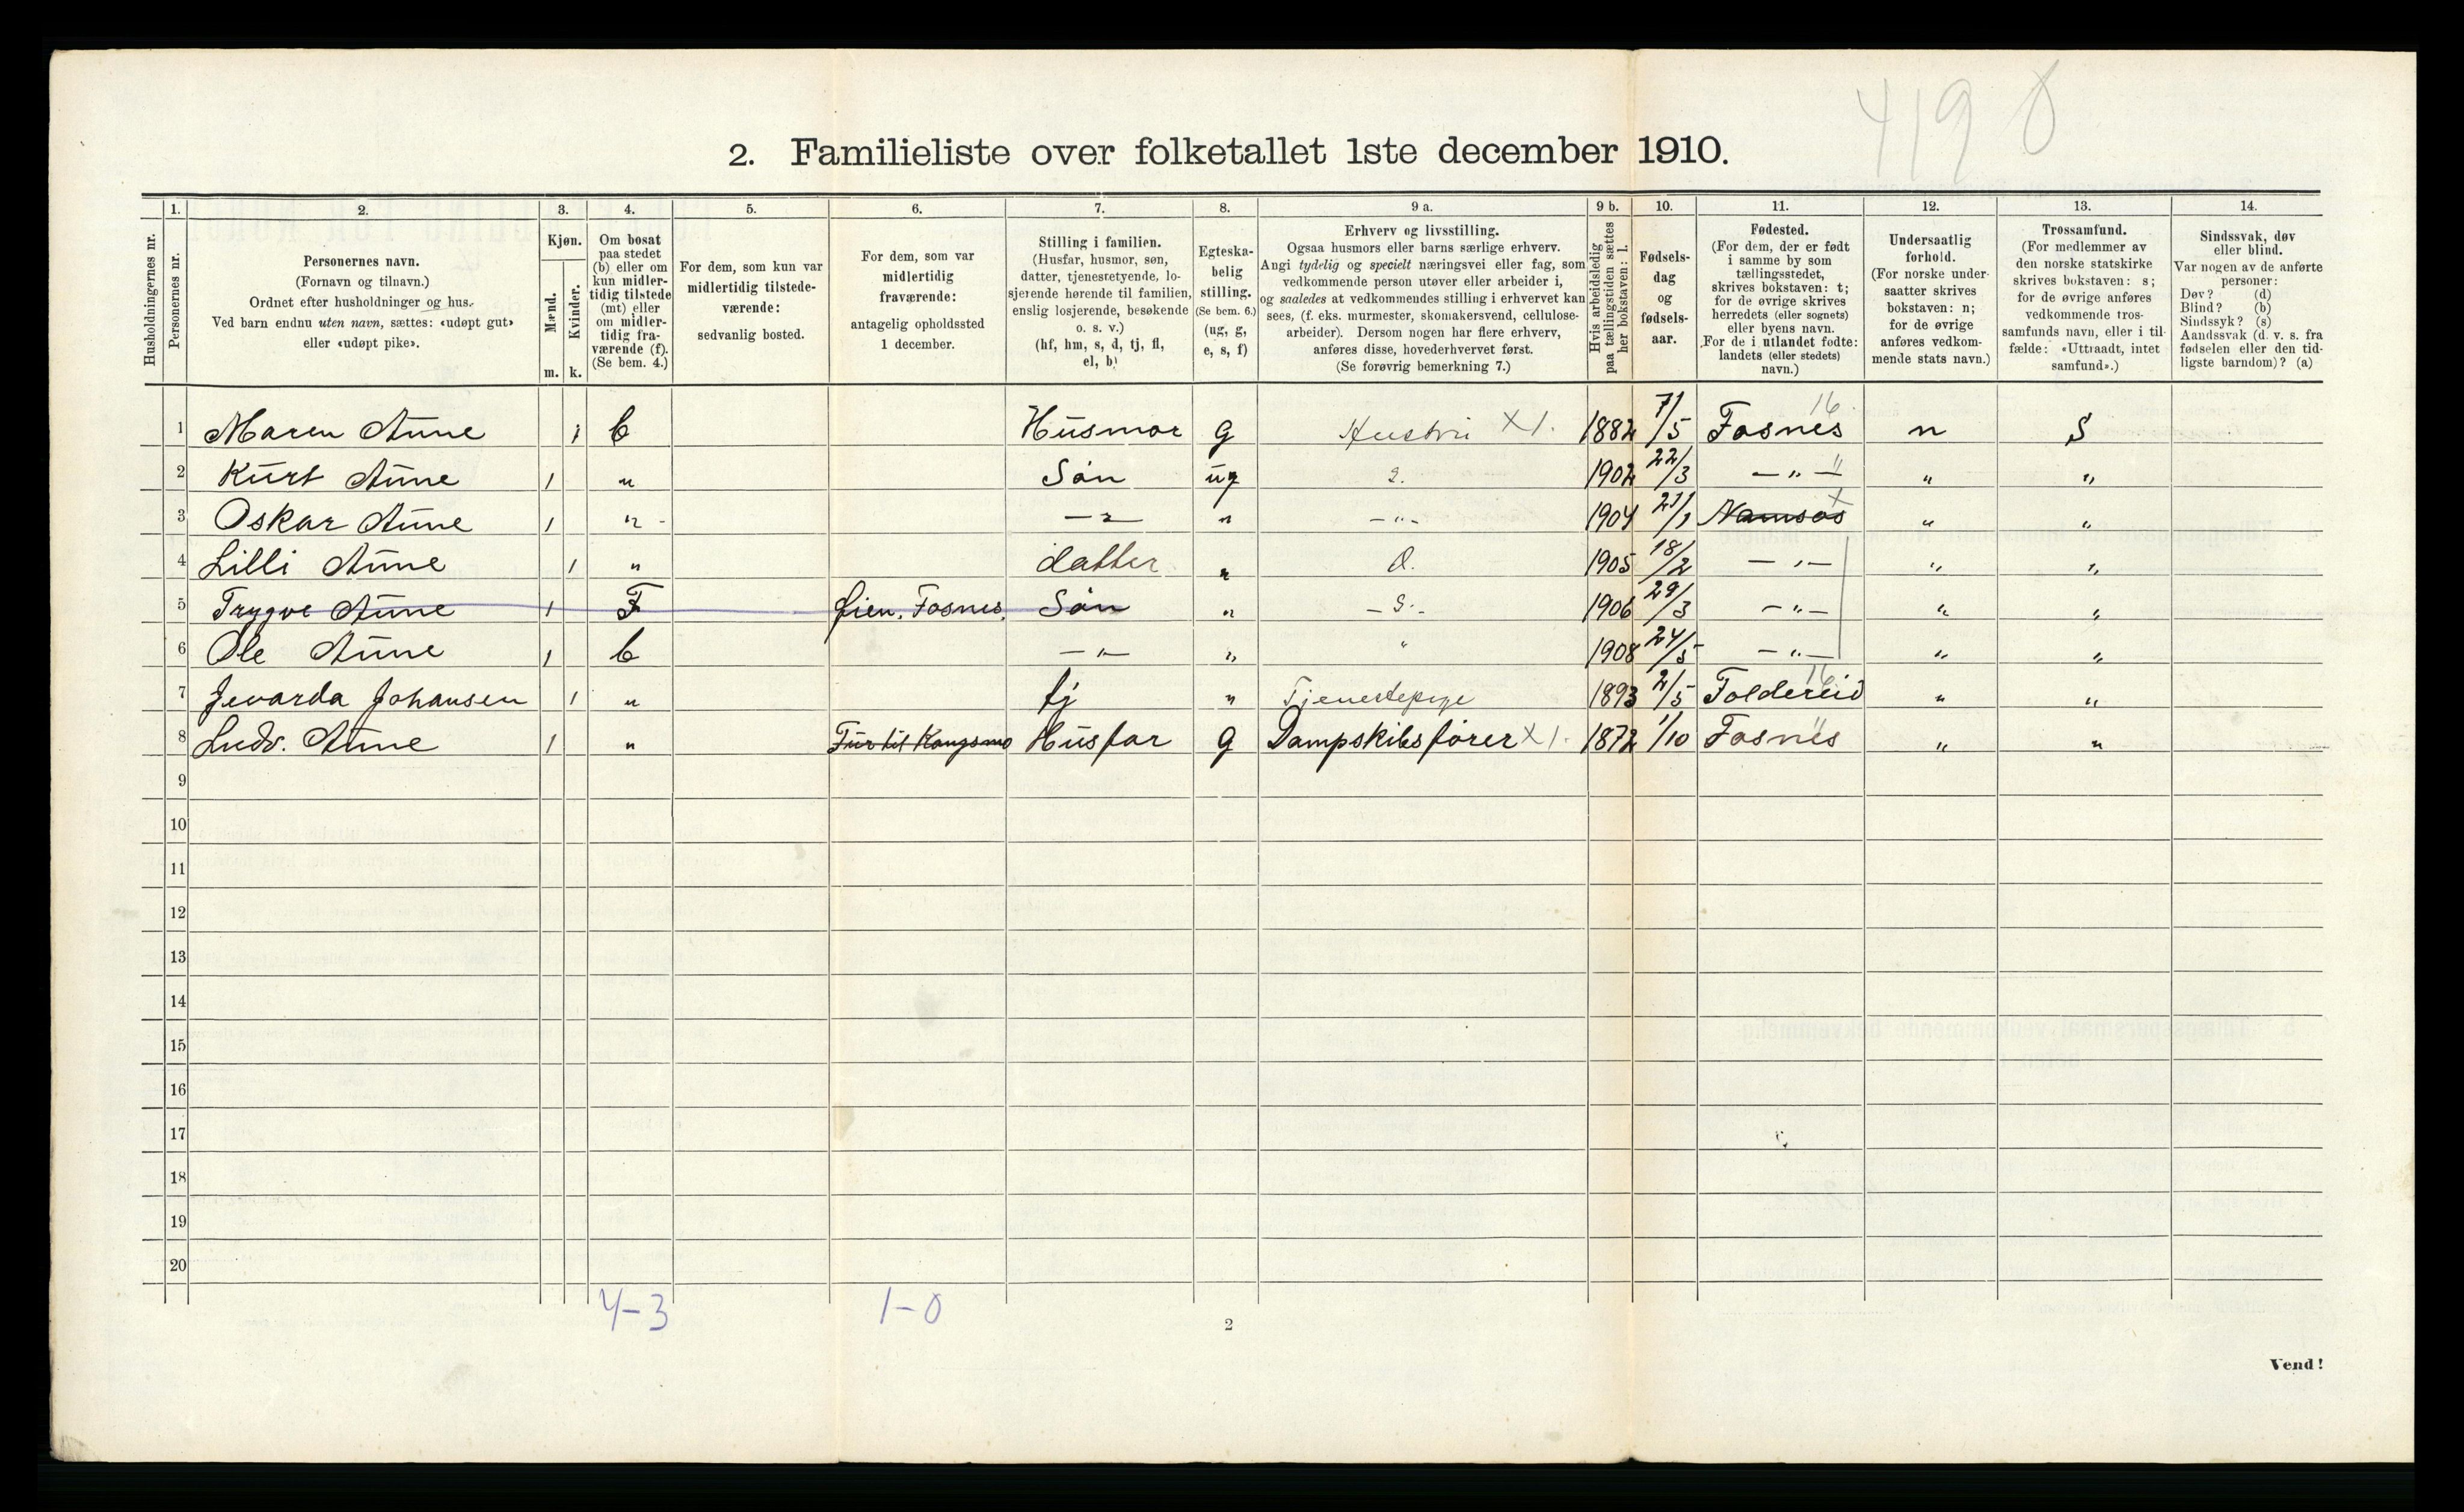 4190
2. Familieliste over folketallet 1ste december 1910.
Husholdningernes nr.
1. Personernes nr.
2. Personernes navn. (Fornavn og tilnavn.) Ordnet efter husholdninger og hus. Ved barn endnu uten navn, sættes: «udøpt gut» eller «udøpt pike».
3. Kjøn. Mænd. m. Kvinder. k.
4. Om bosat paa stedet (b) eller om kun midlertidig tilstede (mt) eller om midlertidig fraværende (f). (Se bem. 4.)
5. For dem, som kun var midlertidig tilstedeværende: sedvanlig bosted.
6. For dem, som var midlertidig fraværende: antagelig opholdssted 1 december.
7. Stilling i familien. (Husfar, husmor, søn, datter, tjenestetyende, losjerende hørende til familien, enslig losjerende, besøkende o. s. v.) (hf, hm, s, d, tj, fl, el, b)
8. Egteskabelig stilling. (Se bem. 6.) (ug, g, e, s, f)
9 a. Erhverv og livsstilling. Ogsaa husmors eller barns særlige erhverv. Angi tydelig og specielt næringsvei eller fag, som vedkommende person utøver eller arbeider i, og saaledes at vedkommendes stilling i erhvervet kan sees, (f. eks. murmester, skomakersvend, cellulosearbeider). Dersom nogen har flere erhverv, anføres disse, hovederhvervet først. (Se forøvrig bemerkning 7.)
9 b. Hvis arbeidsledig paa tællingstiden sættes her bokstaven: l.
10. Fødselsdag og fødselsaar.
11. Fødested. (For dem, der er født i samme by som tællingsstedet, skrives bokstaven: t; for de øvrige skrives herredets (eller sognets) eller byens navn. For de i utlandet fødte: landets (eller stedets) navn.)
12. Undersaatlig forhold. (For norske undersaatter skrives bokstaven: n; for de øvrige anføres vedkommende stats navn.)
13. Trossamfund. (For medlemmer av den norske statskirke skrives bokstaven: s; for de øvrige anføres vedkommende trossamfunds navn, eller i tilfælde: «Uttraadt, intet samfund».)
14. Sindssvak, døv eller blind. Var nogen av de anførte personer: Døv? (d) Blind? (b) Sindssyk? (s) Aandssvak (d. v. s. fra fødselen eller den tidligste barndom)? (a)
1 Maren Aune 1 b Husmor g Hustru X1. 1882 7/5 Fosnes 16 n S
2 Kurt Aune 1 " Søn ug S. 1902 22/3 — " — " " "
3 Oskar Aune 1 " — " — " — " — 1904 21/1 Namsos X " "
4 Lilli Aune 1 " datter " D. 1905 18/2 — " — " "
5 Trygve Aune 1 F Øien. Fosnes. Søn " — S. — 1906 29/3 — " — " "
6 Ole Aune 1 b — " — " " 1908 24/5 — " — " "
7 Jevarda Johansen 1 " tj " Tjenestepige 1893 2/5 Foldereid 16 " "
8 Ludv. Aune 1 " Tur til Kongsmo Husfar g Dampskibsfører X1. 1872 1/10 Fosnes " " "
9
10
11
12
13
14
15
16
17
18
19
20
4-3 1-0
2
Vend!